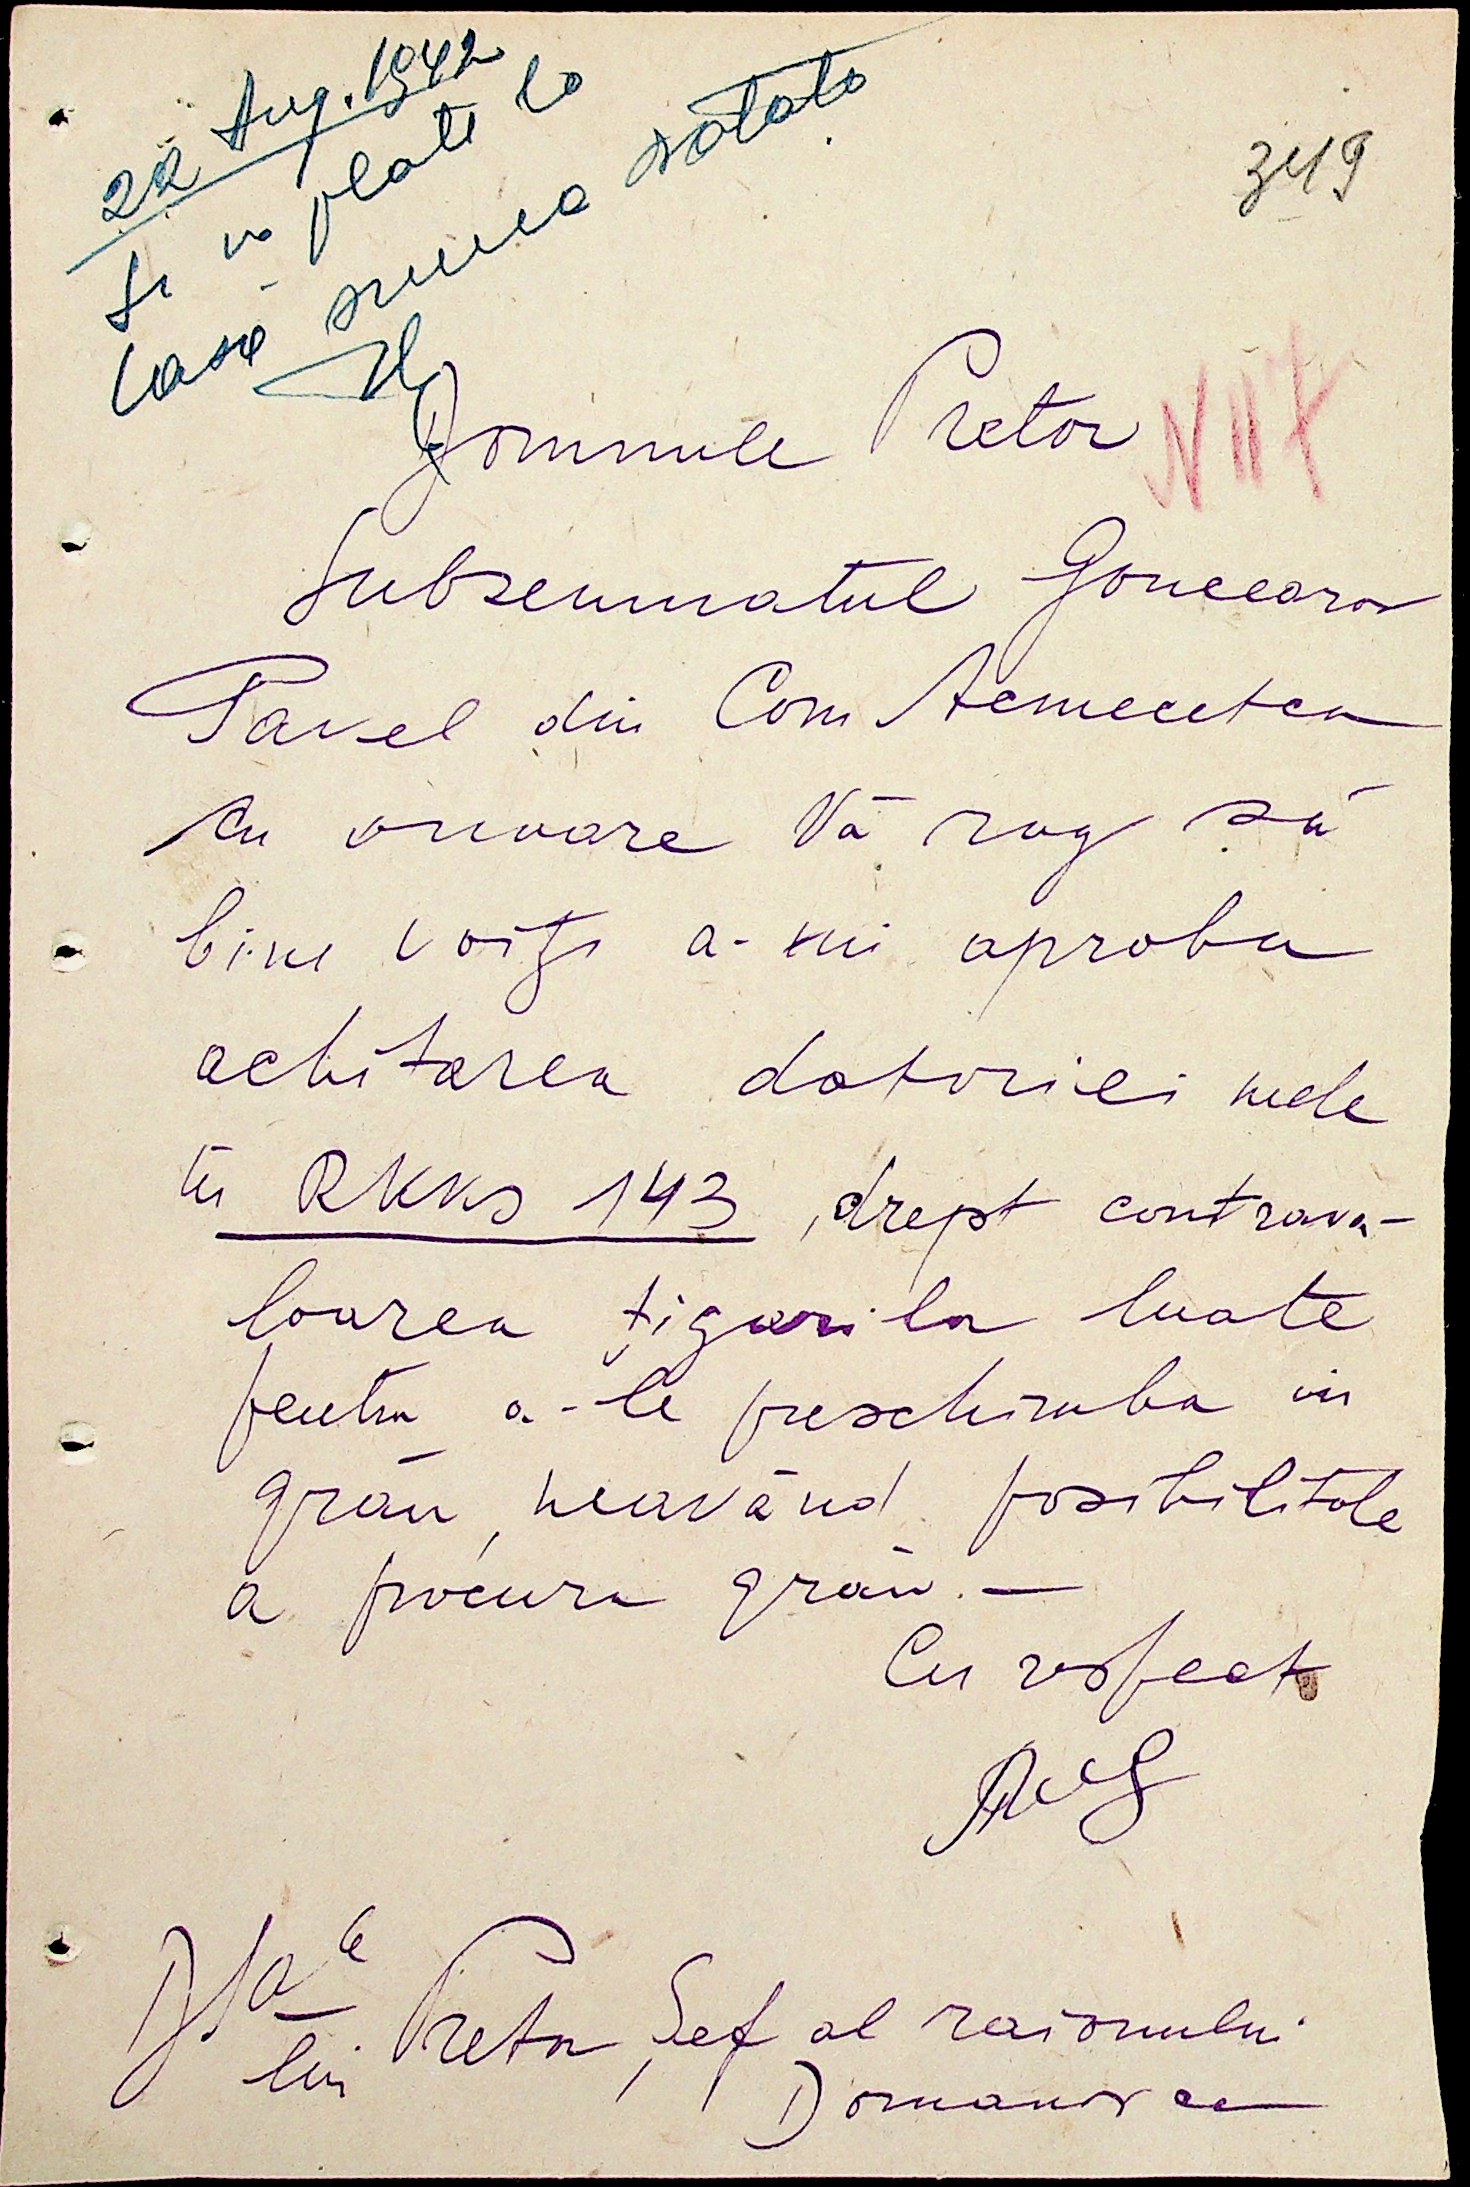 22 Aug. 1942
Se va plati la
casă suma
349
Domnule Pretor
N 117
Subsemnatul Goncearov
Pavel din Com Acmecetca
cu onoare Vă rog să
bine voiți a-mi aproba
achitarea datoriei mele
în RKKS 143, drept contrava-
loarea țigărila luate
pentru a-le preschimba in
grâu, neavând posibilitate
a procura grâu. —
Cu respect
D/sale
lui Pretor, Șef al raionului
Domanovca